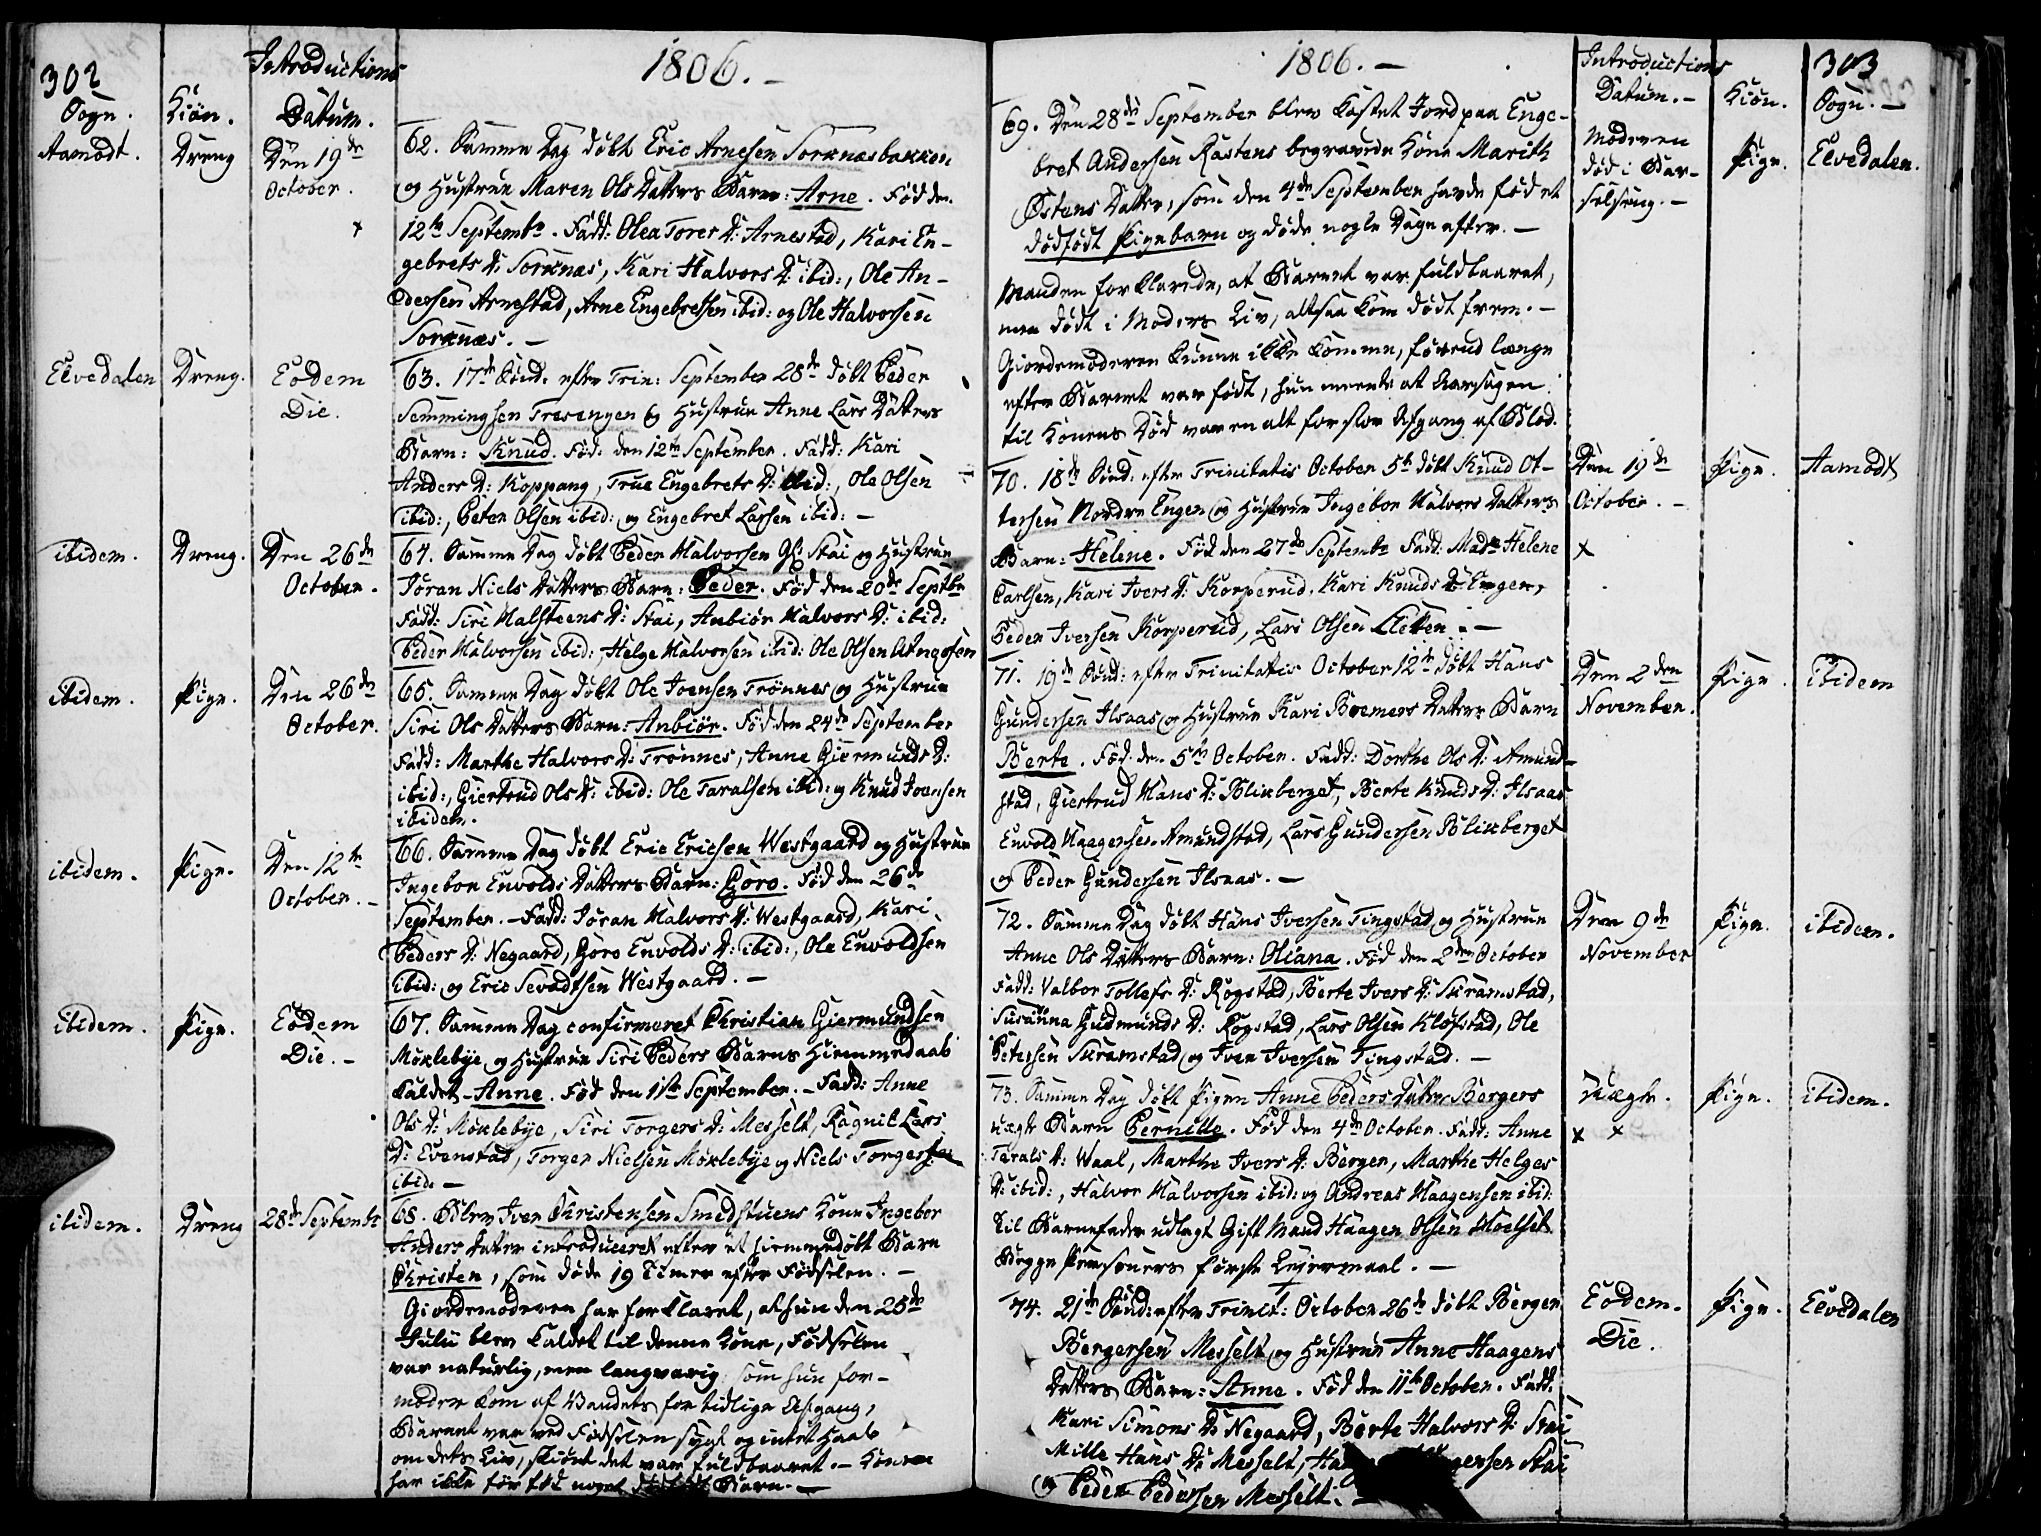 302
Introductions
1806.-
Sogn. Kiön. Datum.
Aamodt. Dreng Den 19de October.
62. Samme Dag döbt Eric Arnesen Sorknæsbakken
og Hustrue Maren Ols Datters Barn: Arne. Föd den
12te Septembr. Fadd: Olea Tores D: Arnestad, Kari En-
gebrets D: Sorknæs, Kari Halvors D: ibid:, Ole An-
dersen Arnestad, Arne Engebretsen ibid: og Ole Halvorsen
Sorknæs.-
Elvedalen Dreng. Eodem Die.
63. 17de Sönd. efter Trin: September 28de döbt Peder
Semmingsen Tresengen og Hustrue Anne Lars Datters
Barn: Knud. Föd: den 12te September. Fadd: Kari
Anders D: Koppang, True Engebrets D: ibid:, Ole Olsen
ibid:, Peter Olsen ibid: og Engebret Larsen ibid:-
ibidem. Dreng. Den 26de October.
64. Samme Dag döbt Peder Halvorsen Stai og Hustrue
Jöran Niels Datters Barn: Peder. Föd den 20de Septbr
Fadd: Siri Halsteens D: Stai, Anbiör Halvors D: ibid:
Peder Halvorsen ibid:, Helge Halvorsen ibid: Ole Olsen Atneosen
ibidem. Pige. Den 26de October.
65. Samme Dag döbt Ole Joensen Trönnes og Hustrue
Siri Ols Datters Barn: Anbiör. Föd den 24de September
Fadd: Marthe Halvors D: Trönnes, Anne Giermunds D:
ibid:, Giertrud Ols D: ibid: Ole Taralsen ibid: og Knud Joensen
ibidem.
ibidem. Pige. Den 12te October.-
66. Samme Dag döbt Eric Ericsen Westgaard og Hustrue
Ingebor Envolds Datters Barn: Goro. Föd den 26de
September.- Fadd: Jöran Halvors D: Westgaard, Kari
Peders D: Negaard, Goro Envolds D: ibid:, Ole Envoldsen
ibid: og Eric Sevadtsen Westgaard.-
ibidem. Pige. Eodem Die.-
67. Samme Dag confirmeret Christian Giermundsen
Möklebye og Hustrue Siri Peders Barns Hiemmedaab
kaldet Anne. Föd den 11te September.- Fadd: Anne
Ols D: Möklebye, Siri Torgers D: Messelt, Ragnil Lars
D: Evenstad, Torger Nielsen Möklebye og Niels Torgersen
ibid.-
ibidem. Dreng 28de Septembr
68. Blev Iver Christensen Smedstuens Kone Ingebor
Anders Datter introduceret efter et hiemmedöbt Barn
Christen, som döde 19 Timer efter Födselen.-
Giordemoderen har forklaret, at hun den 25de
Julii blev kaldet til denne Kone, Födselen
var naturlig, men langvarig som hun for-
meder kom af Vandets for tidlige Afgang,
Barnet var ved Födselen sygt og intet Haab
om dets Liv, skiönt det var fuldbaaret.- Konen
har ikke för föd noget Barn.-
1806.-
Introductions Datum.-
Kiön.
303
Sogn.-
69. Den 28de September blev kastet Jord paa Enge-
bret Andersen Rastens begravede Kone Marith
Östens Datter, som den 4de September havde föd et
dödfödt Pigebarn og döde nogle Dage efter.-
Manden forklarede, at Barnet var fuldbaaret,
men dödt i Moders Liv, altsaa kom dödt frem.-
Giordemoderen kunne ikke komme, förend længe
efter Barnet var födt, hun meente at Aarsagen
til Konens Död var en alt for stor Afgang af Blod.
Moderen död i Bar-selseng.- Pige. Elvedalen.
70. 18de Sönd: efter Trinitatis October 5te döbt Knud Ot-
tersen Nordre Engen og Hustrue Ingebor Halvors Datters
Barn: Helene. Föd den 27de Septembr Fadd: Made Helene
Carlsen, Kari Ivers D: Korperud, Kari Knuds D: Engen,
Peder Iversen Korperud, Lars Olsen Sletten.-
Den 19de October.- Pige. Aamodt
71. 19de Sönd: efter Trinitatis October 12te döbt Hans
Gundersen Ilsaas og Hustrue Kari Bremers Datters Barn
Berte. Föd den 5te October. Fadd: Dorthe Ols D: Amund-
stad, Giertrud Hans D: Blikberget, Berte Knuds D: Ilsaas
Envold Haagensen Amundstad, Lars Gundersen Blikberget
og Peder Gundersen Ilsaas.-
Den 2den November. Pige. ibidem
72. Samme Dag döbt Hans Iversen Tingstad og Hustrue
Anne Ols Datters Barn: Oliana. Föd den 2den October
Fadd: Valbor Tollefs D: Rogstad, Berte Ivers D: Skramstad,
Susanna Gudmunds D: Rogstad, Lars Olsen Kløfstad, Ole
Petersen Skramstad og Iver Iversen Tingstad.-
Den 9de November Pige. ibidem.
73. Samme Dag döbt Pigen Anne Peders Datter Bergers
uægte Barn Pernille. Föd den 4de October. Fadd: Anne
Tarals D: Waal, Marthe Ivers D: Berger, Marthe Helges
D: ibid:, Halvor Halvorsen ibid: og Andreas Haagensen ibid:
Til Barnefader udlagt Gift Mand Haagen Olsen Moelset
Begge Personers förste Leiermaal.-
Uægte. Pige. ibidem.
74. 21de Sönd: efter Trinit: October 26de döbt Berger
Bergersen Messelt og Hustrue Anne Haagens
Datters Barn: Anne. Föd den 11te October. Fadd.
Kari Simons D: Negaard, Berte Halvors D: Stai
Mille Hans D: Messelt, Ha gersen Stai
og Peder Pedersen Messelt.-
Eodem. Die. Pige. Elvedalen